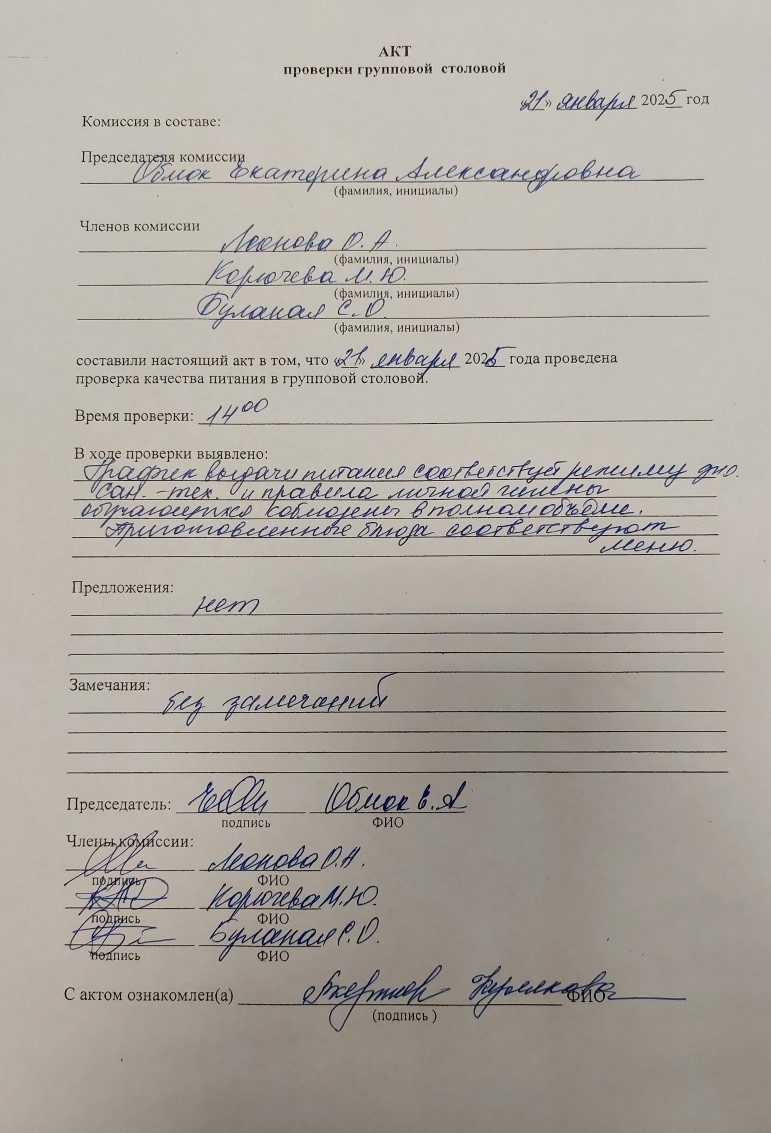 АКТ
проверки групповой столовой
«21» января 2025 год
Комиссия в составе:
Председателя комиссии
Обмок Екатерина Александровна
(фамилия, инициалы)
Членов комиссии
Леонова О.А.
(фамилия, инициалы)
Корючева М.Ю.
(фамилия, инициалы)
Буланая С.О.
(фамилия, инициалы)
составили настоящий акт в том, что «21» января 2025 года проведена
проверка качества питания в групповой столовой.
Время проверки: 14 00
В ходе проверки выявлено:
График выдачи питания соответствует режиму дня.
Сан. -тех. и правила личной гигиены
обучающихся соблюдены в полном объёме.
Приготовленные блюда соответствуют
меню.
Предложения:
нет
Замечания:
без замечаний
Председатель: Обмок Е.А
подпись ФИО
Члены комиссии:
Леонова О.А.
подпись ФИО
Корючева М.Ю.
подпись ФИО
Буланая С.О.
подпись ФИО
С актом ознакомлен(а) ФИО
(подпись )